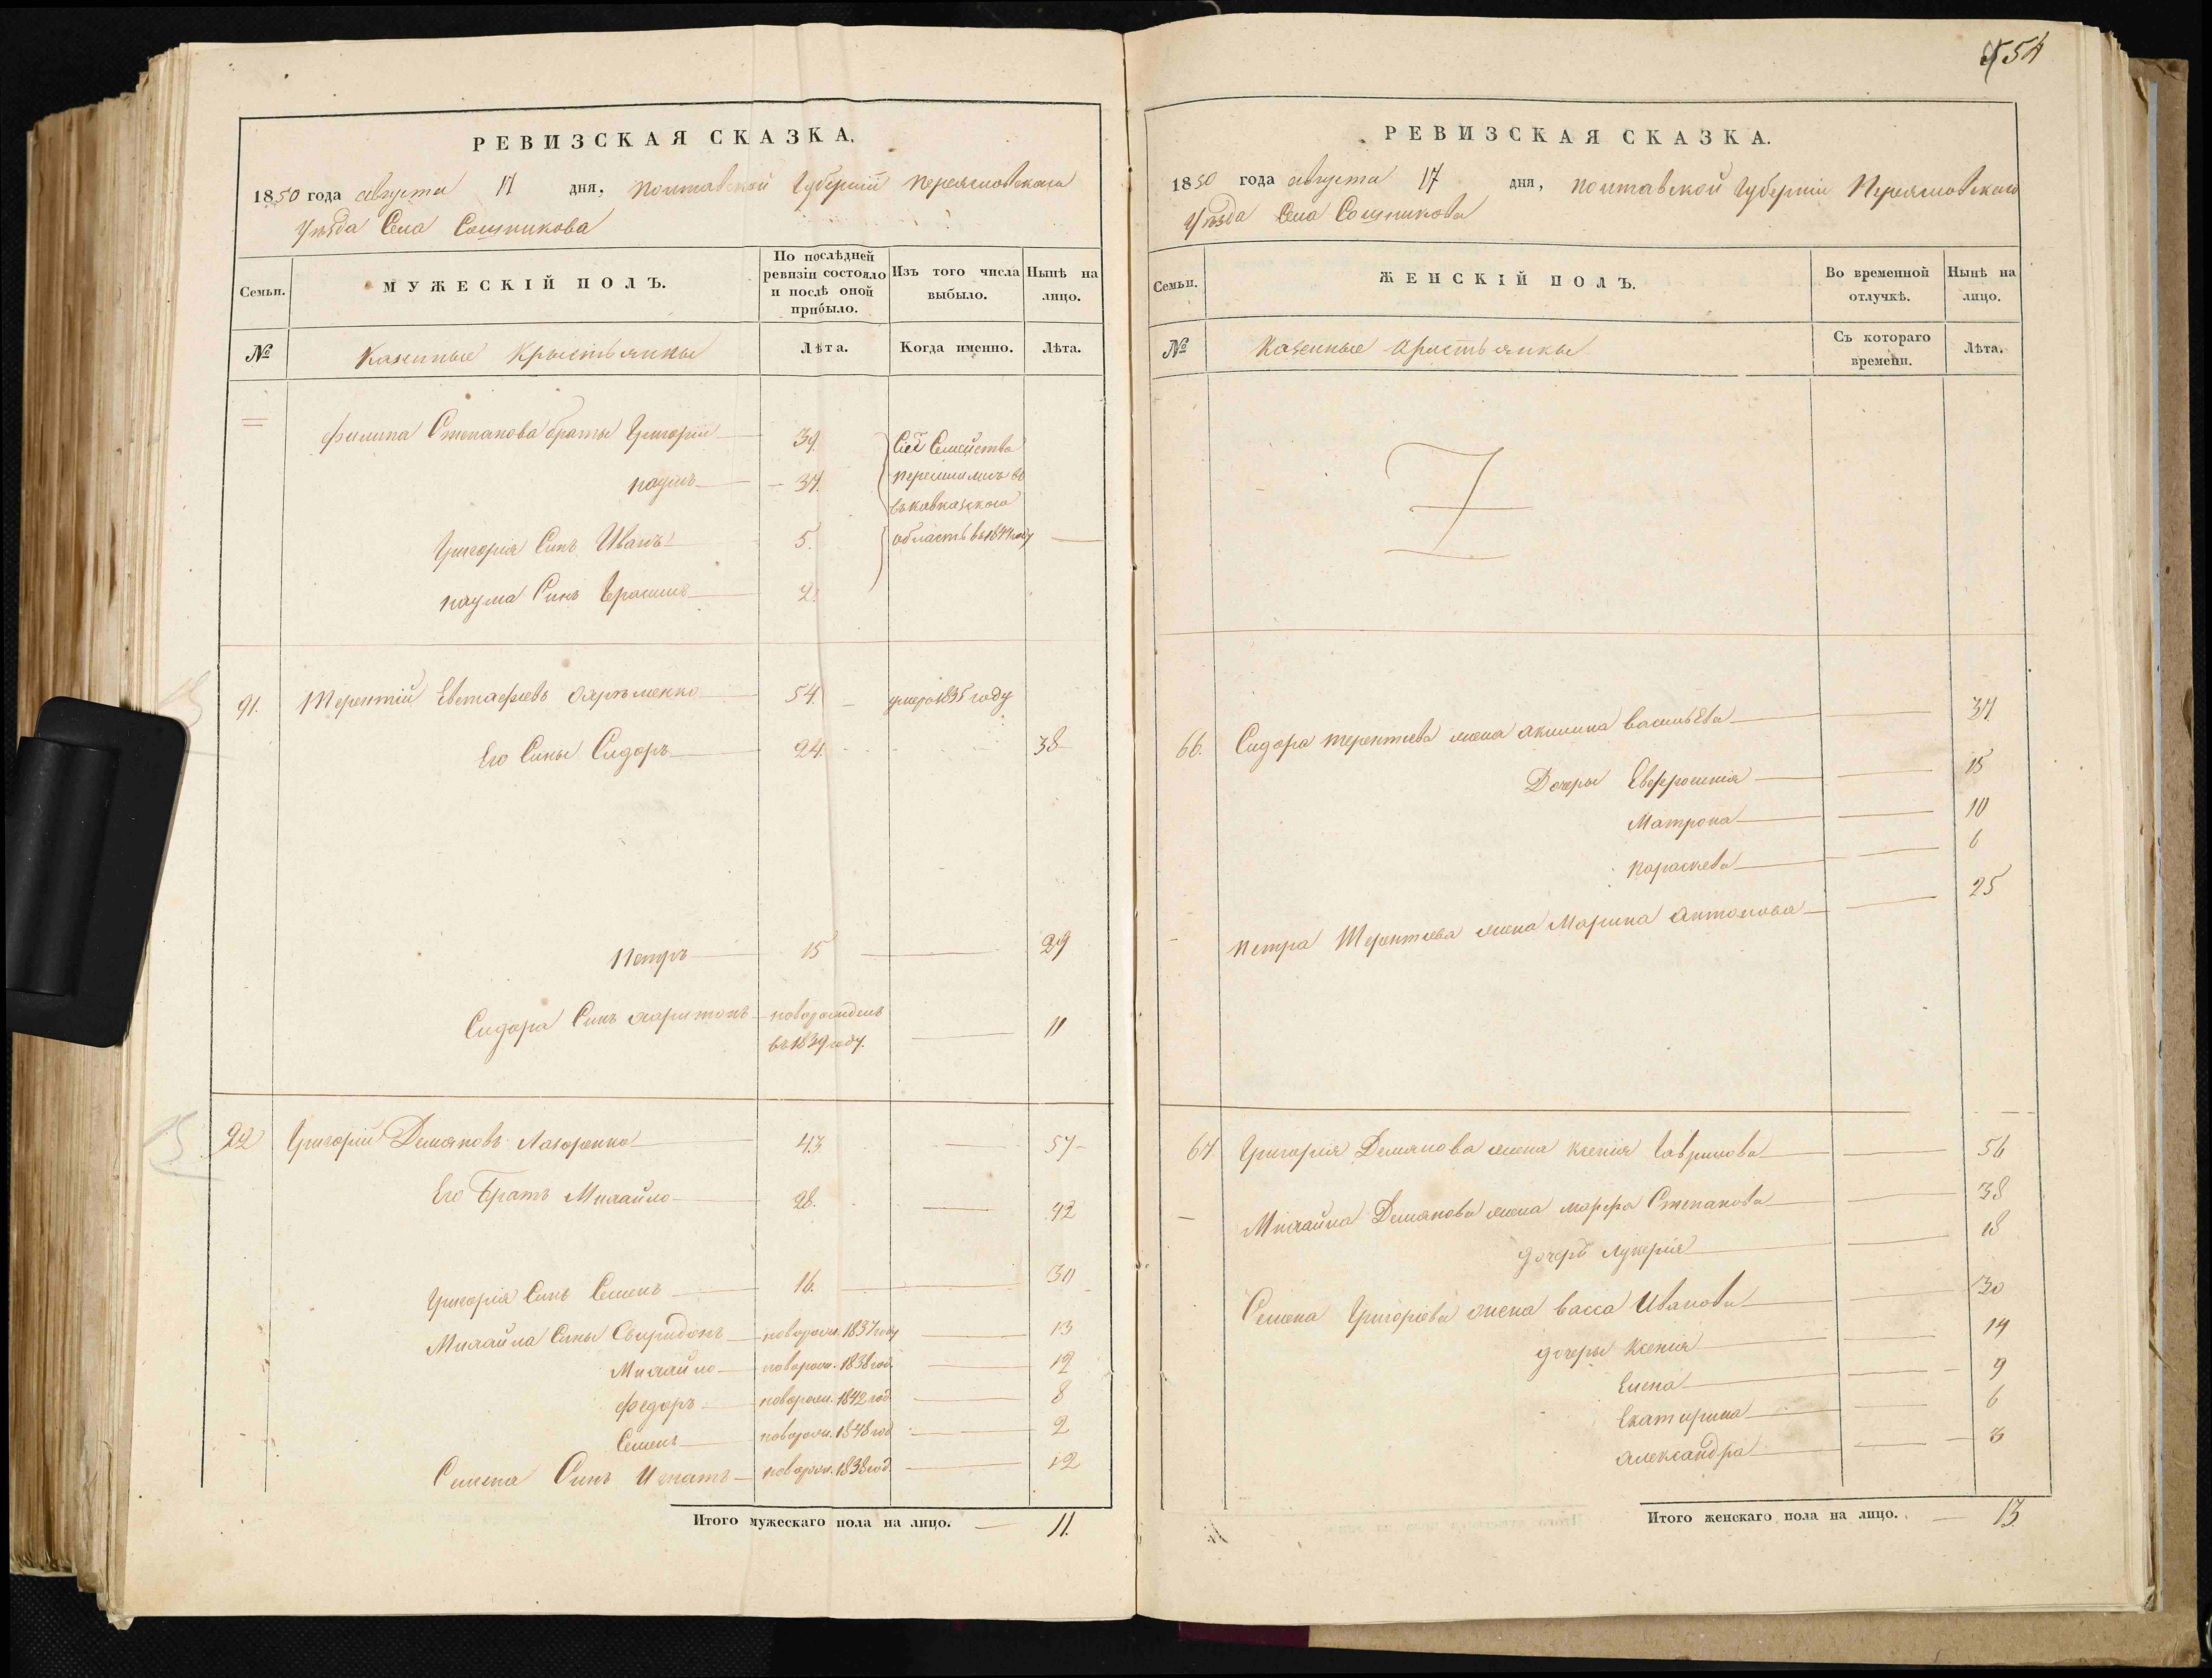 554
РЕВИЗСКАЯ СКАЗКА.
1850 года августа 17 дня, полтавской Губерніи Переяславскаго
Уѣзда Села Сошникова
Семьи.
МУЖЕСКІЙ ПОЛЪ.
По послѣдней ревизіи состояло и послѣ оной прибыло.
Изъ того числа выбыло.
Нынѣ на лицо.
№
Казенные Крыстьянны
Лѣта.
Когда именно.
Лѣта.
Филипа Степанова браты Григорій 39
Сіе Семейство
Наумъ 37
переселились во
въ кавказского
Григорія Синъ Иванъ 5.
область въ 1844 году
Наума Синъ 2.
91. Терентій Евстафіевъ Охрѣменко 54. умеръ 1835 году
Его Сины Сидоръ 24. 38
Петръ 15 29
Сидора Синъ харитонъ новорожденъ 11
въ 1839 году.
92 Григорій Демяновъ Лазоренко 43 57
Его Братъ Михайло 28. 42
Григорія Синъ Семенъ 16. 30
Михайла Сины Свиридонъ новорож. 1837 году 13
Михайло новорож. 1838 год. 12
Федоръ новорож. 1842 год 8
Семенъ новорож. 1848 год 2
Семена Синъ Игнатъ новорож. 1838 год. 12
Итого мужескаго пола на лицо. 11.
РЕВИЗСКАЯ СКАЗКА.
1850 года августа 17 дня, полтавской Губерніи Переяславскаго
Уѣзда Села Сошникова
Семьи.
ЖЕНСКІЙ ПОЛЪ.
Во временной отлучкѣ.
Нынѣ на лицо.
№
Казенные крыстьянки
Съ котораго времени.
Лѣта.
66. Сидора терентиева жена акилина васильЕва 37
Дочеры Евфросинія 15
Матрона 10
параскева 6
петра Терентиева жена Марина антонова 25
67. Григорія Демянова жена ксенія Гаврилова 56
Михайла Демянова жена марфа Степанова 38
дочерь лукерія 18
Семена Григоріева жена васса Иванова 30
дочеры ксенія 14
Елена 9
Екатирина 6
александра 3
Итого женскаго пола на лицо. 13